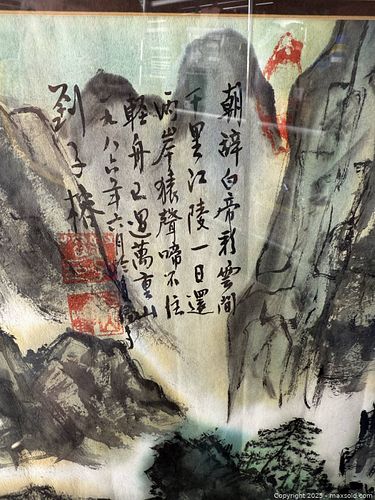 朝辭白帝彩雲間
千里江陵一日還
兩岸猿聲啼不住
輕舟已過萬重山
一九八六年六月於
劉子
Copyright 2025 - maxsold.com